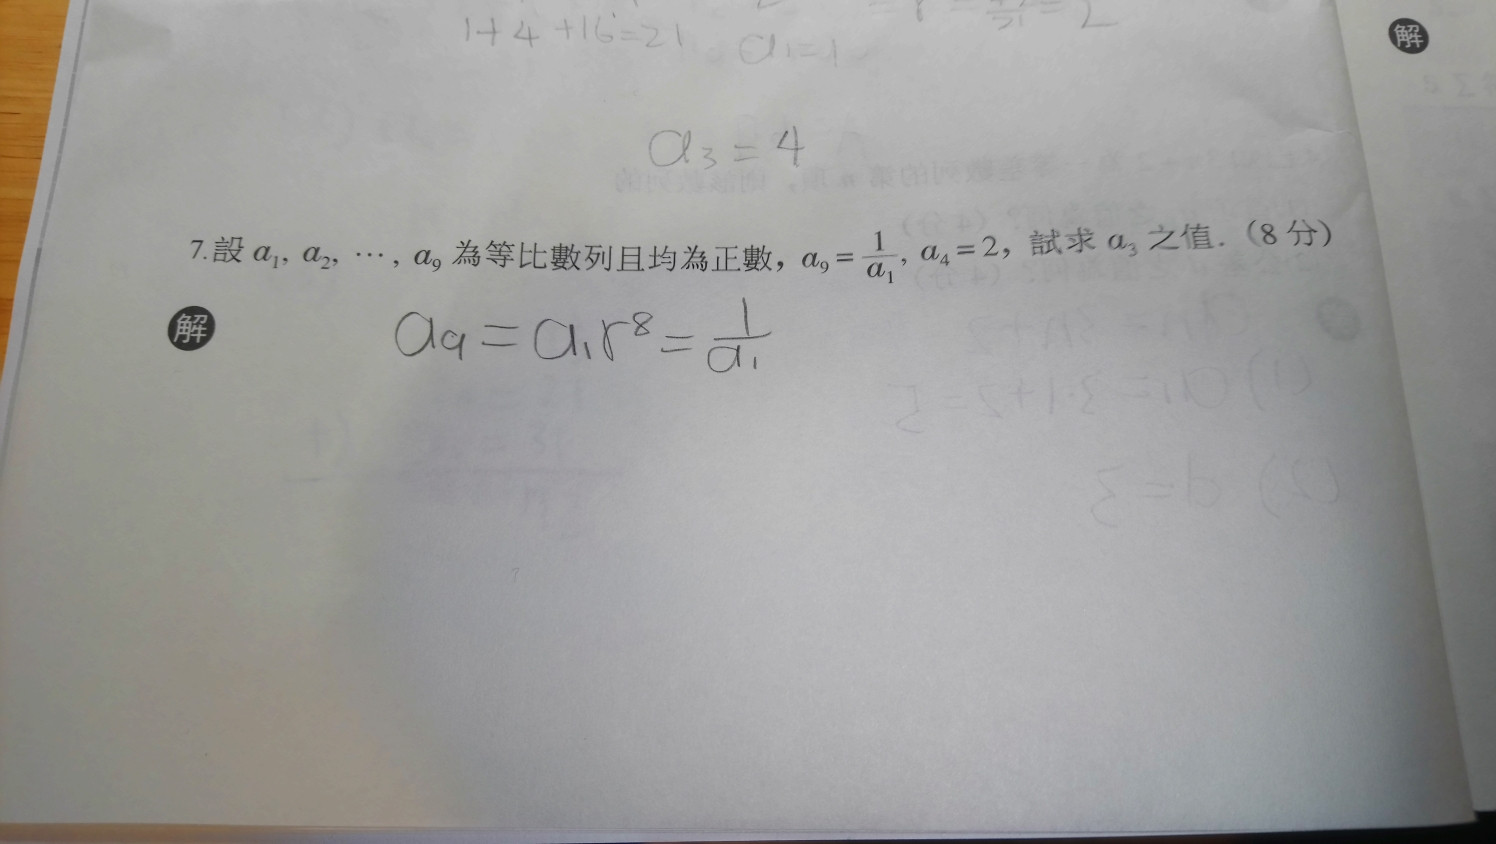 1+4+16=21
a₁=1
解
a₃=4
7.設 a₁, a₂, ⋯, a₉ 為等比數列且均為正數，a₉=1/a₁, a₄=2，試求 a₃ 之值.（8 分）
解
a₉=a₁r⁸=1/a₁